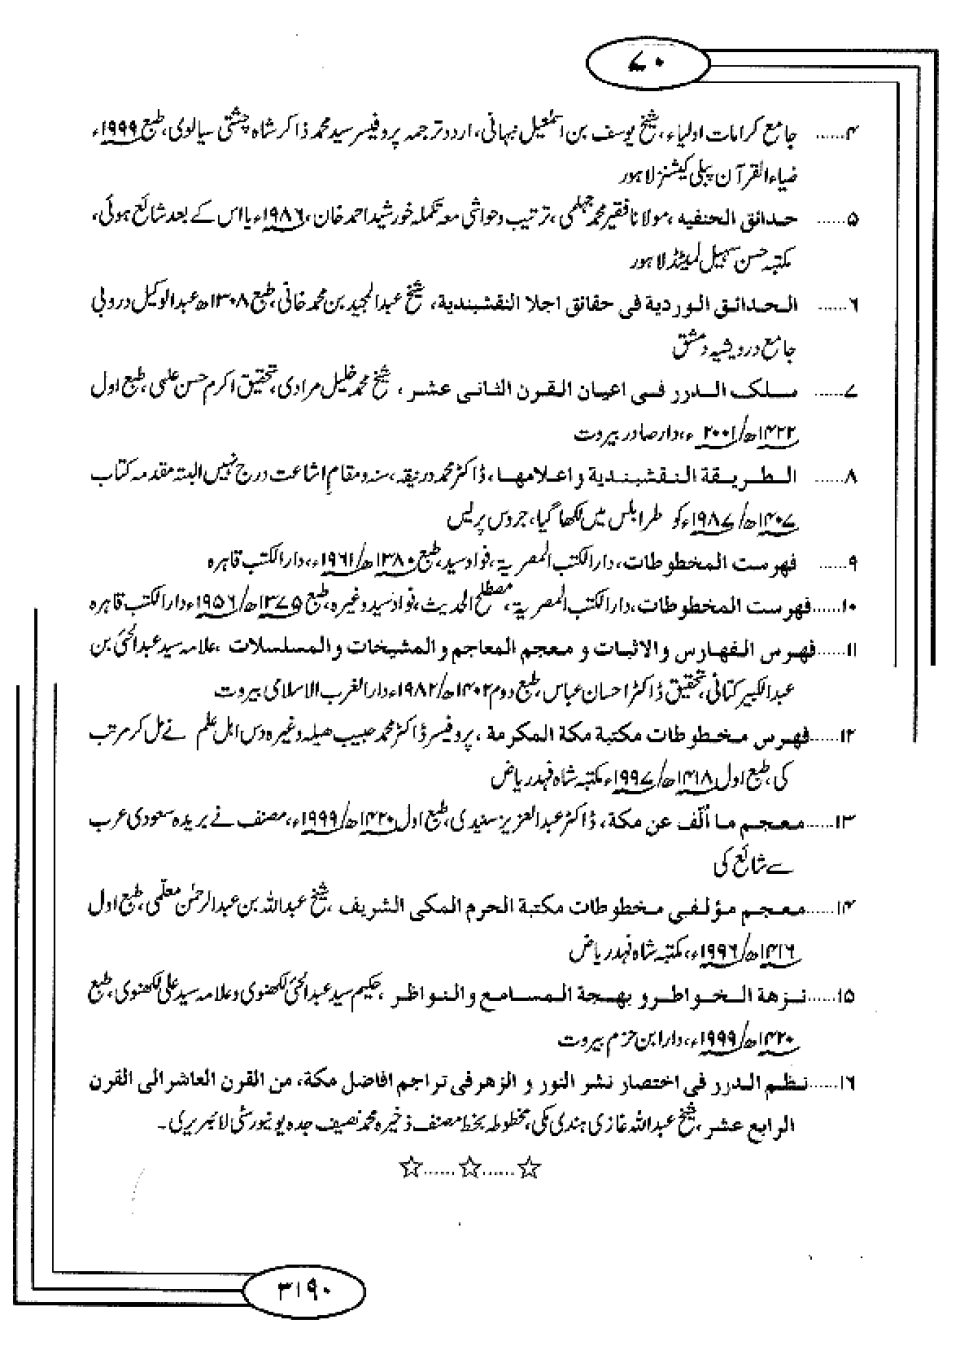 ۷۰
۴......جامع کرامات اولیاء، شیخ یوسف بن اسمعیل نبہانی، اردو ترجمہ پروفیسر سید محمد ذاکر شاہ چشتی سیالوی، طبع ۱۹۹۹ء
ضیاء القرآن پبلی کیشنز لاہور
۵......حدائق الحنفیہ، مولانا فقیر محمد جہلمی، ترتیب و حواشی معہ تکملہ خورشید احمد خان، ۱۹۸۶ء یا اس کے بعد شائع ہوئی،
مکتبہ حسن سہیل لمیٹڈ لاہور
۶......الحدائق الوردیة فی حقائق اجلا النقشبندیة، شیخ عبدالمجید بن محمد خانی، طبع ۱۳۰۸ھ عبدالوکیل دروبی
جامع درویشیہ دمشق
۷......سلک الدرر فی اعیان القرن الثانی عشر، شیخ محمد خلیل مرادی، تحقیق اکرم حسن علبی، طبع اول
۱۴۲۲ھ/۲۰۰۱ء، دار صادر بیروت
۸......الطریقة النقشبندیة و اعلامها، ڈاکٹر محمد درنیقہ، سنہ و مقام اشاعت درج نہیں البتہ مقدمہ کتاب
۱۴۰۷ھ/۱۹۸۷ء کو طرابلس میں لکھا گیا، جروس پریس
۹......فهرست المخطوطات، دارالکتب المصریة، فواد سید، طبع ۱۳۸۰ھ/۱۹۶۱ء، دارالکتب قاہرہ
۱۰......فهرست المخطوطات، دارالکتب المصریة، مصطلح الحدیث، فواد سید وغیرہ، طبع ۱۳۷۵ھ/۱۹۵۶ء دارالکتب قاہرہ
۱۱......فهرس الفهارس والاثبات و معجم المعاجم و المشیخات والمسلسلات، علامہ سید عبدالحئ بن
عبدالکبیر کتانی، تحقیق ڈاکٹر احسان عباس، طبع دوم ۱۴۰۲ھ/۱۹۸۲ء دارالغرب الاسلامی بیروت
۱۲......فهرس مخطوطات مکتبة مکة المکرمة، پروفیسر ڈاکٹر محمد حبیب ھیلہ وغیرہ دس اہل علم نے مل کر مرتب
کی، طبع اول ۱۴۱۸ھ/۱۹۹۷ء مکتبہ شاہ فہد ریاض
۱۳......معجم ما ألف عن مكة، ڈاکٹر عبدالعزیز سنیدی، طبع اول ۱۴۲۰ھ/۱۹۹۹ء، مصنف نے بریدہ سعودی عرب
سے شائع کی
۱۴......معجم مؤلفی مخطوطات مکتبة الحرم المکی الشریف، شیخ عبداللہ بن عبدالرحمٰن معلّمی، طبع اول
۱۴۱۶ھ/۱۹۹۶ء، مکتبہ شاہ فہد ریاض
۱۵......نزهة الخواطر و بهجة المسامع والنواظر، حکیم سید عبدالحئ لکھنوی و علامہ سید علی لکھنوی، طبع
۱۴۲۰ھ/۱۹۹۹ء، دار ابن حزم بیروت
۱۶......نظم الدرر فی اختصار نشر النور و الزهر فی تراجم افاضل مکة، من القرن العاشر الی القرن
الرابع عشر، شیخ عبداللہ غازی ہندی مکی، مخطوطہ بخط مصنف ذخیرہ محمد نصیف جدہ یونیورسٹی لائبریری۔
☆......☆......☆
۳۱۹۰